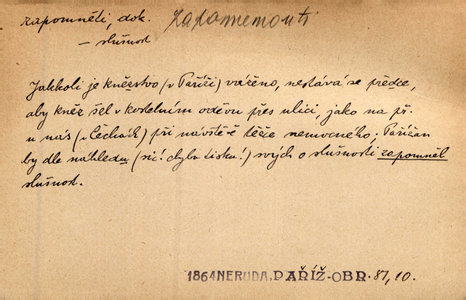 zapomněti, dok. zapomenouti
— slušnost
Jakkoli je kněžstvo (v Paříži) váženo, nestává se předce,
aby kněz šel v kostelním oděvu přes ulici, jako na př.
u nás (v Čechách) při návštěvě těžce nemocného; Pařížan
by dle náhledu (sic! chyba tisku!) svých o slušnosti zapomněl
slušnost.
1864 NERUDA, PAŘÍŽ-OBR. 87, 10.